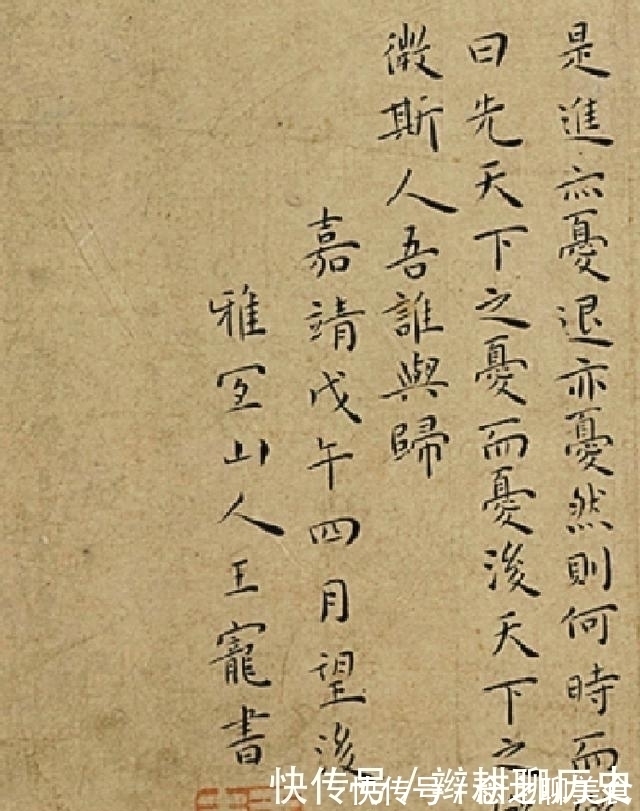 是進亦憂退亦憂然則何時而
曰先天下之憂而憂後天下之
微斯人吾誰與歸
嘉靖戊午四月望後
雅宜山人王寵書
快传号 / 辫耕聊历史